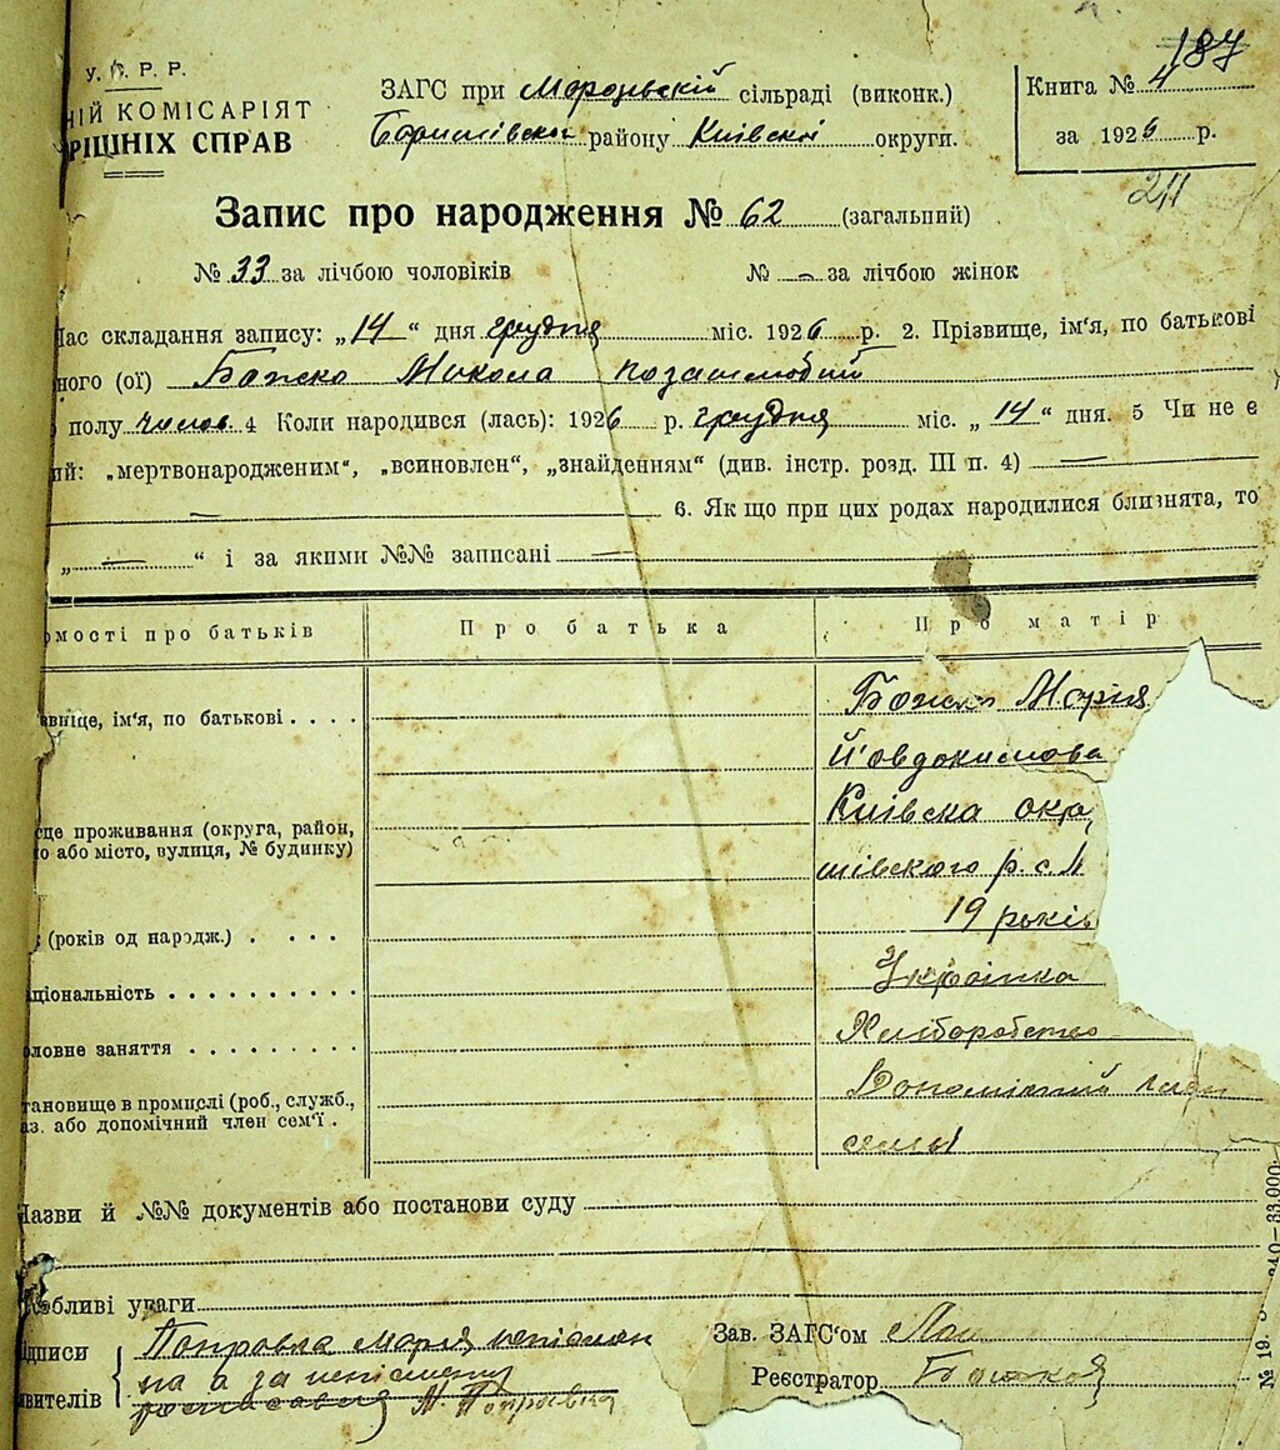 У. С. Р. Р.
НІЙ КОМІСАРІЯТ
РІШНІХ СПРАВ
ЗАГС при Морозівскій сільраді (виконк.)
Баришівском району Київскої округи.
187
Книга № 4
за 1926 р.
211
Запис про народження № 62 (загальний)
№ 33 за лічбою чоловіків № — за лічбою жінок
Час складання запису: „14“ дня грудня міс. 1926 р. 2. Прізвище, ім'я, по батькові
ного (ої) Божко Микола позашлюбий
полу чолов. 4 Коли народився (лась): 1926 р. грудня міс. „14“ дня. 5 Чи не є
ий: „мертвонародженим“, „всиновлен“, „знайденням“ (див. інстр. розд. III п. 4) —
— 6. Як що при цих родах народилися близнята, то
„—“ і за якими №№ записані —
омості про батьків Про батька Про матір
звище, ім'я, по батькові . . . . Божко Марія
Й'овдокимова
сце проживання (округа, район, Київска окр,
о або місто, вулиця, № будинку)
шівского р. с. М
(років од народж.) . . . . 19 років
ціональність . . . . . . . . . . Українка
ловне заняття . . . . . . . . . Хліборобство
тановище в промислі (роб., служб., Допоміжний член
аз. або допомічний член сем'ї . семьї
Назви й №№ документів або постанови суду
собливі уваги
дписи Попровка Марія непісмен
на а за непісмену
явителів росписавця М. Попровка
Зав. ЗАГС'ом
Реєстратор Божко